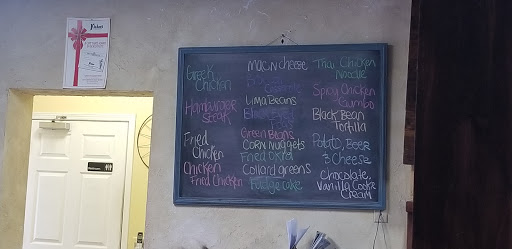 Greek
Chicken
Hamburger
Steak
Fried
Chicken
Chicken
Fried Chicken
Mac N cheese
Lima Beans
Green Beans
Corn Nuggets
Fried Okra
Collard greens
Fudge cake
Thai Chicken
Noodle
Spicy Chicken
Gumbo
Black Bean
Tortilla
Potato, Beer
3 Cheese
Chocolate
Vanilla Cookie
Cream